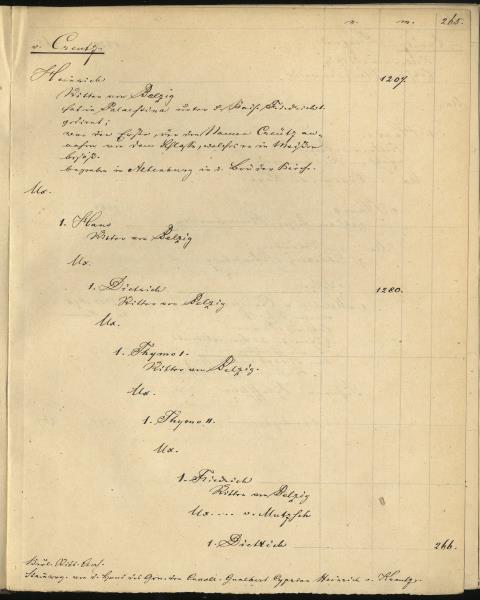 n. m. 265.
v. Creutz.
Heinrich 1207.
Ritter von Belzig
hat in Palaestina unter d. Kais. Friedrich I.
gedient;
war der Erste, der den Namen Creutz an-
nahm von dem Schlosse, welches er in Meissen
besaß.
begraben in Altenburg in d. Brüder Kirche.
Ux.
1. Hans
Ritter von Belzig
Ux.
1. Dietrich 1280.
Ritter von Belzig
Ux.
1. Thymo I.
Ritter von Belzig.
Ux.
1. Thymo II.
Ux.
1. Friedrich
Ritter von Belzig
Ux. .... v. Mutzsch
1. Diettrich 266.
Heinrich v. Kreutz.